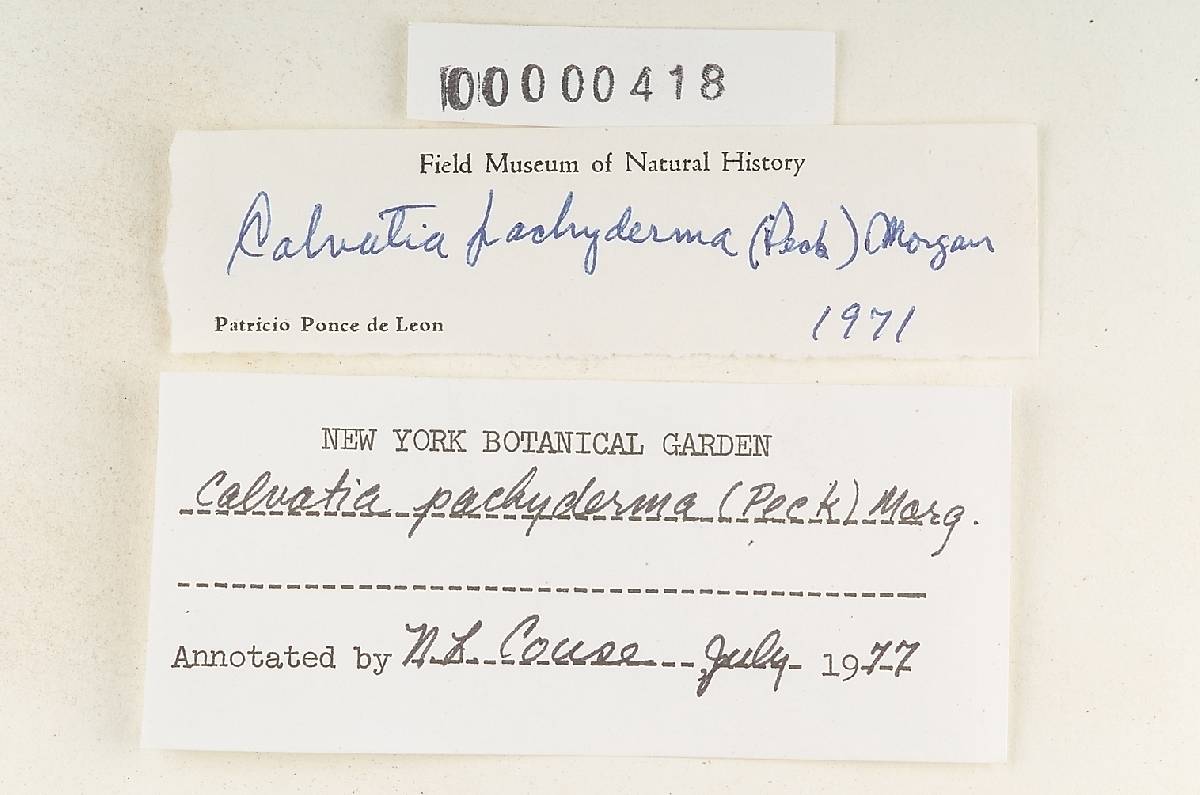 00000418
Field Museum of Natural History
Calvatia pachyderma (Peck) Morgan
1971
Patricio Ponce de Leon
NEW YORK BOTANICAL GARDEN
Calvatia pachyderma (Peck) Morg.
Annotated by N L Couse July 1977